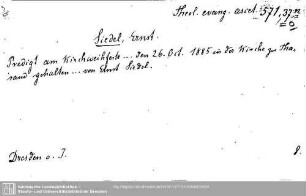 Theol. evang. ascet. 571,37m
=0
Siedel, Ernst.
Predigt am Kirchweihfeste ... den 26. Oct. 1885 in der Kirche zu Tha-
rand gehalten ... von Ernst Siedel.
Dresden o. J. 8.
Sächsische Landesbibliothek -
Staats- und Universitätsbibliothek Dresden